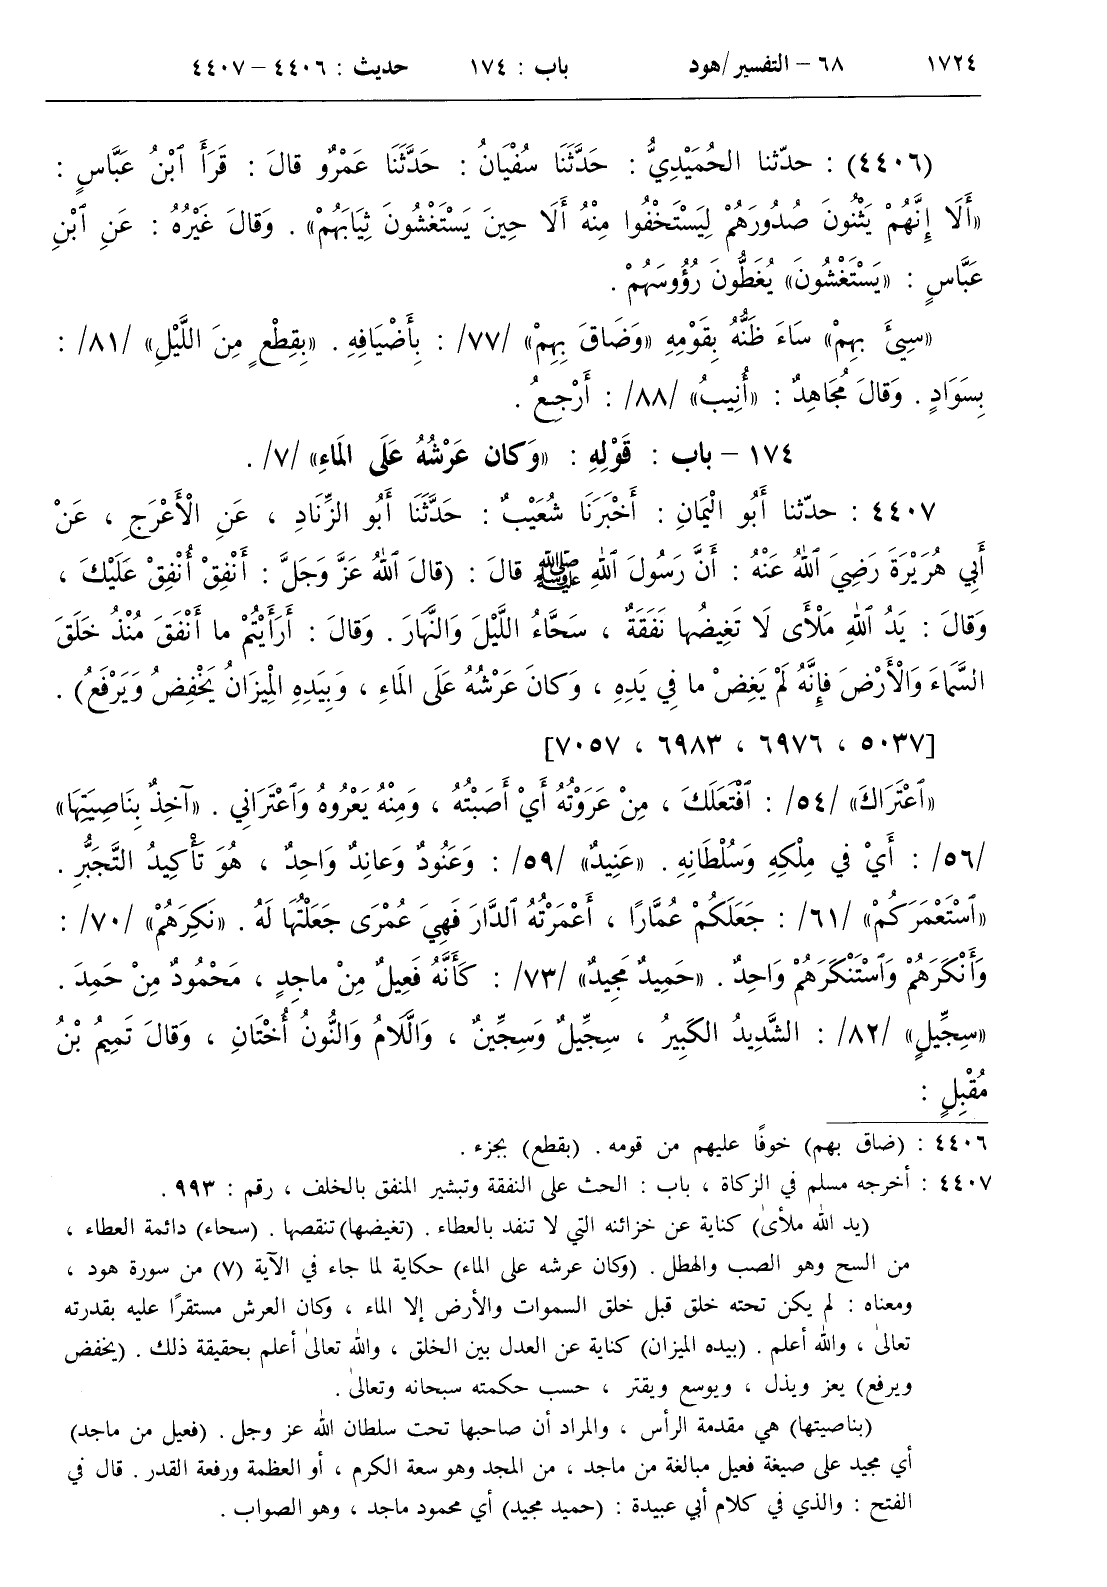 ١٧٢٤ ٦٨ – التفسير/هود باب : ١٧٤ حديث : ٤٤٠٦ – ٤٤٠٧
(٤٤٠٦) : حدّثنا الحُمَيْدِيُّ : حَدَّثَنَا سُفْيَانُ : حَدَّثَنَا عَمْرٌو قالَ : قَرَأَ ٱبْنُ عَبَّاسٍ :
«أَلَا إِنَّهُمْ يَثْنُونَ صُدُورَهُمْ لِيَسْتَخْفُوا مِنْهُ أَلَا حِينَ يَسْتَغْشُونَ ثِيَابَهُمْ» . وَقالَ غَيْرُهُ : عَنِ ٱبْنِ
عَبَّاسٍ : «يَسْتَغْشُونَ» يُغَطُّونَ رُؤُوسَهُمْ .
«سِيءَ بِهِمْ» سَاءَ ظَنُّهُ بِقَوْمِهِ «وَضَاقَ بِهِمْ» /٧٧/ : بِأَضْيَافِهِ . «بِقِطْعٍ مِنَ اللَّيْلِ» /٨١/ :
بِسَوَادٍ . وَقالَ مُجَاهِدٌ : «أُنِيبُ» /٨٨/ : أَرْجِعُ .
١٧٤ – باب : قَوْلِهِ : «وَكان عَرْشُهُ عَلَى المَاءِ» /٧/ .
٤٤٠٧ : حدّثنا أَبُو الْيَمَانِ : أَخْبَرَنَا شُعَيْبٌ : حَدَّثَنَا أَبُو الزِّنَادِ ، عَنِ الْأَعْرَجِ ، عَنْ
أَبِي هُرَيْرَةَ رَضِيَ ٱللهُ عَنْهُ : أَنَّ رَسُولَ ٱللهِ ﷺ قالَ : (قالَ ٱللهُ عَزَّ وَجَلَّ : أَنْفِقْ أُنْفِقْ عَلَيْكَ ،
وَقالَ : يَدُ ٱللهِ مَلْأَى لَا تَغِيضُها نَفَقَةٌ ، سَحَّاءُ اللَّيْلَ وَالنَّهَارَ . وَقالَ : أَرَأَيْتُمْ ما أَنْفَقَ مُنْذُ خَلَقَ
السَّمَاءَ وَالْأَرْضَ فإِنَّهُ لَمْ يَغِضْ ما فِي يَدِهِ ، وَكانَ عَرْشُهُ عَلَى المَاءِ ، وَبِيَدِهِ الْمِيزَانُ يَخْفِضُ وَيَرْفَعُ) .
[٥٠٣٧ ، ٦٩٧٦ ، ٦٩٨٣ ، ٧٠٥٧]
«ٱعْتَرَاكَ» /٥٤/ : ٱفْتَعَلَكَ ، مِنْ عَرَوْتُهُ أَيْ أَصَبْتُهُ ، وَمِنْهُ يَعْرُوهُ وَٱعْتَرَانِي . «آخِذٌ بِنَاصِيَتِهَا»
/٥٦/ : أَيْ فِي مِلْكِهِ وَسُلْطَانِهِ . «عَنِيدٌ» /٥٩/ : وَعَنُودٌ وَعانِدٌ وَاحِدٌ ، هُوَ تَأْكِيدُ التَّجَبُّرِ .
«ٱسْتَعْمَرَكُمْ» /٦١/ : جَعَلَكُمْ عُمَّارًا ، أَعْمَرْتُهُ الدَّارَ فَهِيَ عُمْرَى جَعَلْتُهَا لَهُ . «نَكِرَهُمْ» /٧٠/ :
وَأَنْكَرَهُمْ وَٱسْتَنْكَرَهُمْ وَاحِدٌ . «حَمِيدٌ مَجِيدٌ» /٧٣/ : كَأَنَّهُ فَعِيلٌ مِنْ ماجِدٍ ، مَحْمُودٌ مِنْ حَمِدَ .
«سِجِّيلٍ» /٨٢/ : الشَّدِيدُ الكَبِيرُ ، سِجِّيلٌ وَسِجِّينٌ ، وَالَّلامُ وَالنُّونُ أُخْتَانِ ، وَقالَ تَمِيمُ بْنُ
مُقْبِلٍ :
٤٤٠٦ : (ضاق بهم) خوفًا عليهم من قومه . (بقطع) بجزء .
٤٤٠٧ : أخرجه مسلم في الزكاة ، باب : الحث على النفقة وتبشير المنفق بالخلف ، رقم : ٩٩٣ .
(يد الله ملأى) كناية عن خزائنه التي لا تنفد بالعطاء . (تغيضها) تنقصها . (سحاء) دائمة العطاء ،
من السح وهو الصب والهطل . (وكان عرشه على الماء) حكاية لما جاء في الآية (٧) من سورة هود ،
ومعناه : لم يكن تحته خلق قبل خلق السموات والأرض إلا الماء ، وكان العرش مستقرًا عليه بقدرته
تعالىٰ ، والله أعلم . (بيده الميزان) كناية عن العدل بين الخلق ، والله تعالىٰ أعلم بحقيقة ذلك . (يخفض
ويرفع) يعز ويذل ، ويوسع ويقتر ، حسب حكمته سبحانه وتعالىٰ .
(بناصيتها) هي مقدمة الرأس ، والمراد أن صاحبها تحت سلطان الله عز وجل . (فعيل من ماجد)
أي مجيد على صيغة فعيل مبالغة من ماجد ، من المجد وهو سعة الكرم ، أو العظمة ورفعة القدر . قال في
الفتح : والذي في كلام أبي عبيدة : (حميد مجيد) أي محمود ماجد ، وهو الصواب .